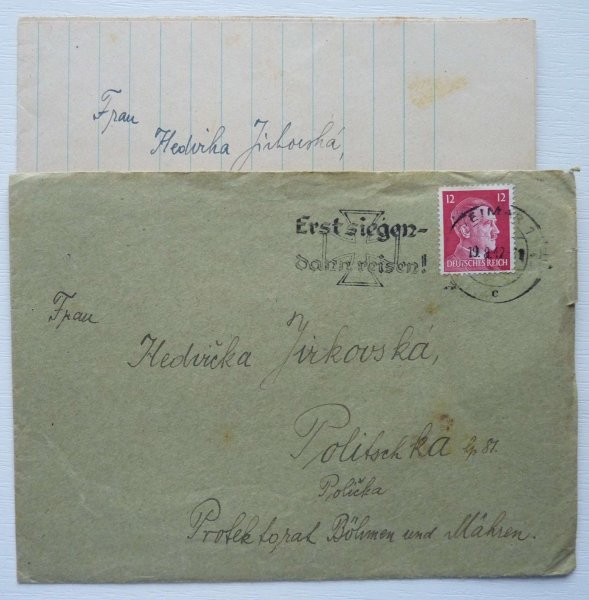 Frau
Hedvika Jirkovská,
Erst siegen-
dann reisen!
12 12
DEUTSCHES REICH
EIMAR 1
19.8.42
c
Frau
Hedvička Jirkovská,
Politschka čp 81.
Polička
Protektorat Böhmen und Mähren.